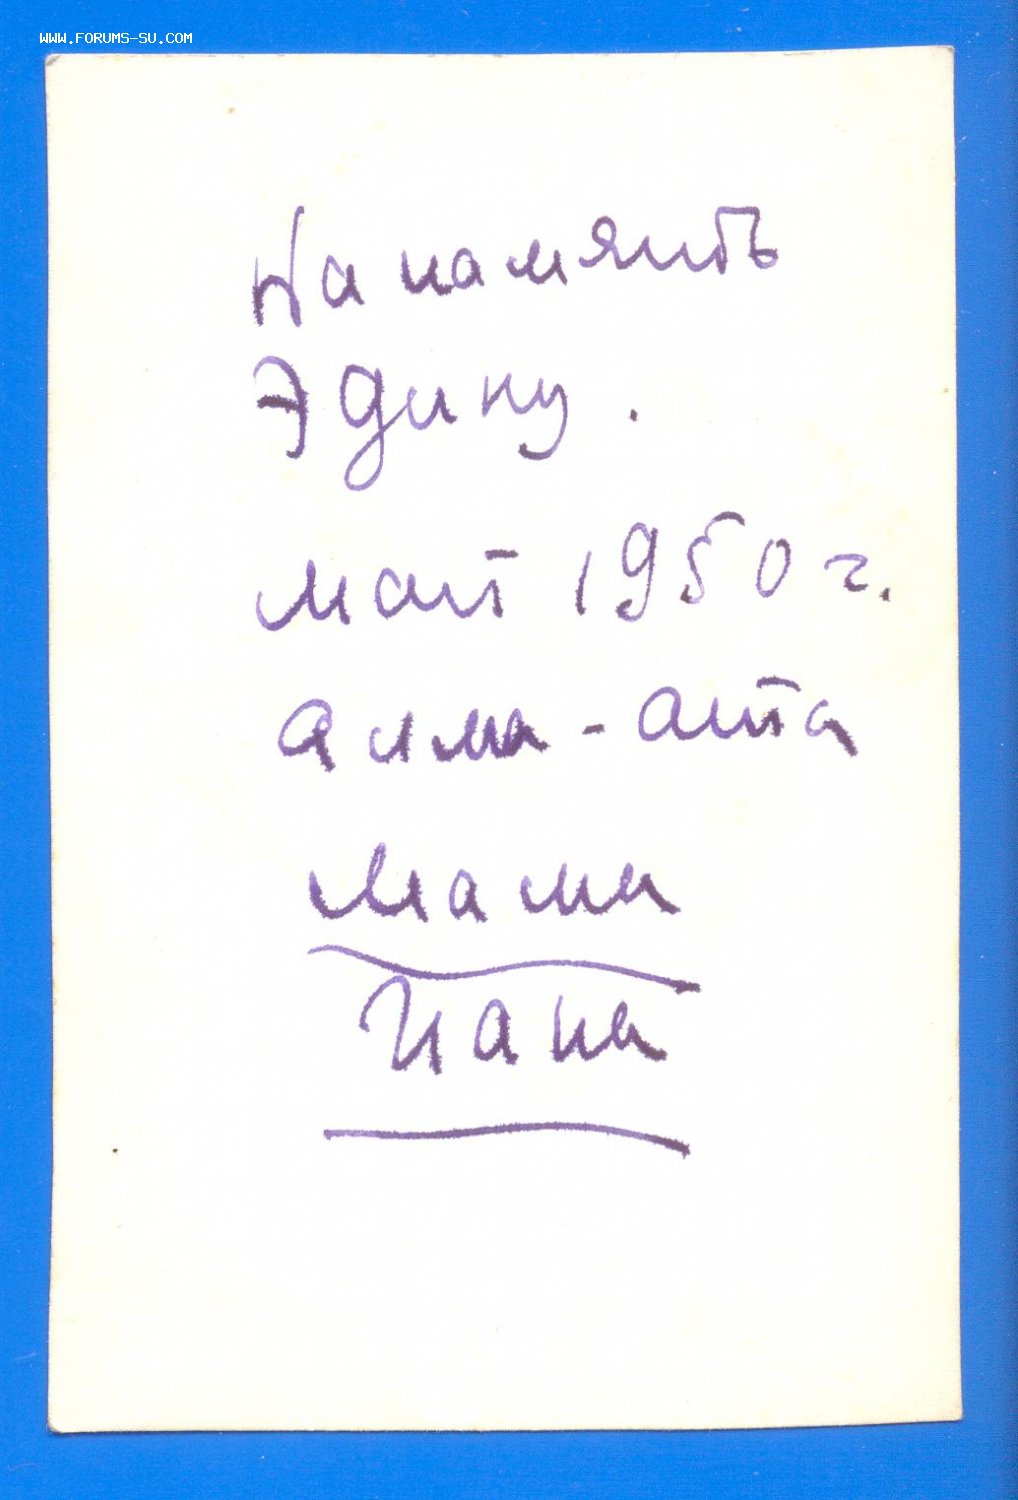 WWW.FORUMS-SU.COM
На память
Эдину.
Май 1950 г.
Алма-Ата
Мама
Папа